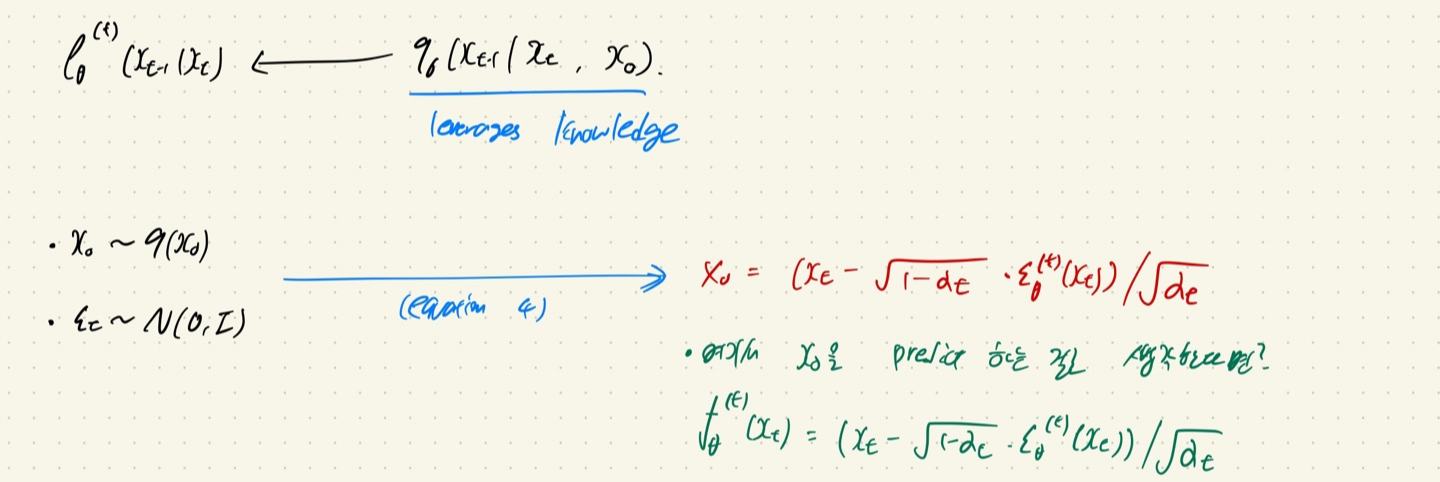 p_θ^(t)(x_{t-1}|x_t) ← q_σ(x_{t-1}|x_t, x_0).
leverages knowledge
· x_0 ~ q(x_0)
(equation 4)
x_0 = (x_t - √(1-α_t) · ε_θ^(t)(x_t)) / √α_t
· ε_t ~ N(0, I)
· 여기서 x_0을 predict 하는 걸로 생각한다면?
f_θ^(t)(x_t) = (x_t - √(1-α_t) · ε_θ^(t)(x_t)) / √α_t